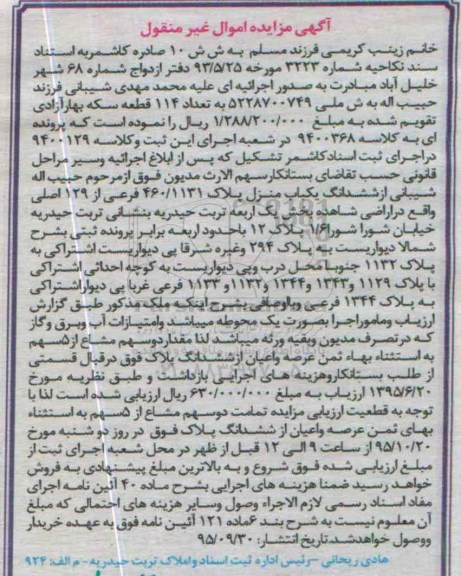 آگهی مزایده اموال غیر منقول
خانم زینب کریمی فرزند مسلم به ش ش ۱۰ صادره کاشمر به استناد
سند نکاحیه شماره ۳۲۲۳ مورخه ۹۳/۵/۲۵ دفتر ازدواج شماره ۶۸ شهر
خلیل آباد مبادرت به صدور اجرائیه ای علیه محمد مهدی شیبانی فرزند
حبیب اله به ش ملی ۵۲۲۸۷۰۰۷۴۹ به تعداد ۱۱۴ قطعه سکه بهار آزادی
تقویم شده به مبلغ ۱/۲۸۸/۲۰۰/۰۰۰ ریال را نموده است که پرونده
ای به کلاسه ۹۴۰۰۳۶۸ در شعبه اجرای این ثبت وکلاسه ۹۴۰۰۱۲۹
دراجرای ثبت اسناد کاشمر تشکیل که پس از ابلاغ اجرائیه وسیر مراحل
قانونی حسب تقاضای بستانکار سهم الارث مدیون فوق ازمرحوم حبیب اله
شیبانی ازششدانگ یکباب منزل پلاک ۴۶۰/۱۱۳۱ فرعی از ۱۲۹ اصلی
واقع دراراضی شاهده بخش یک اربعه تربت حیدریه بنشانی تربت حیدریه
خیابان شورا شورا۱/۶ پلاک ۱۲ باحدود اربعه برابر پرونده ثبتی بشرح
شمالا دیواریست به پلاک ۲۹۴ وغیره شرقا پی دیواریست اشتراکی به
پلاک ۱۱۳۲ جنوبا محل درب وپی دیواریست به کوچه احداثی اشتراکی
با پلاک ۱۱۲۹ و۱۳۴۳ و۱۳۴۴ و۱۱۳۲ و ۱۱۳۳ فرعی غربا پی دیواراشتراکی
به پلاک ۱۳۴۴ فرعی وبااوصافی بشرح اینکه ملک مذکور طبق گزارش
ارزیاب ومامور اجرا بصورت یک محوطه میباشد وامتیازات آب وبرق وگاز
که درتصرف مدیون وبقیه ورثه میباشد لذا مقداردوسهم مشاع از۵سهم
به استثناء بهاء ثمن عرصه واعیان ازششدانگ پلاک فوق درقبال قسمتی
از طلب بستانکاروهزینه های اجرایی بازداشت و طبق نظریه مورخ
۱۳۹۵/۶/۲۰ ارزیاب به مبلغ ۶۳۰/۰۰۰/۰۰۰ ریال ارزیابی شده است لذا با
توجه به قطعیت ارزیابی مزایده تمامت دوسهم مشاع از ۵سهم به استثناء
بهای ثمن عرصه واعیان از ششدانگ پلاک فوق در روز دو شنبه مورخ
۹۵/۱۰/۲۰ از ساعت ۹ الی ۱۲ قبل از ظهر در محل شعبه اجرای ثبت از
مبلغ ارزیابی شده فوق شروع و به بالاترین مبلغ پیشنهادی به فروش
خواهد رسید ضمنا هزینه های اجرایی بشرح ماده ۴۰ آئین نامه اجرای
مفاد اسناد رسمی لازم الاجراء وصول وسایر هزینه های احتمالی که مبلغ
آن معلوم نیست به شرح بند ۶ماده ۱۲۱ آئین نامه فوق به عهده خریدار
ووصول خواهدشد.تاریخ انتشار: ۹۵/۰۹/۳۰
هادی ریحانی -رئیس اداره ثبت اسناد واملاک تربت حیدریه- م الف: ۹۲۴